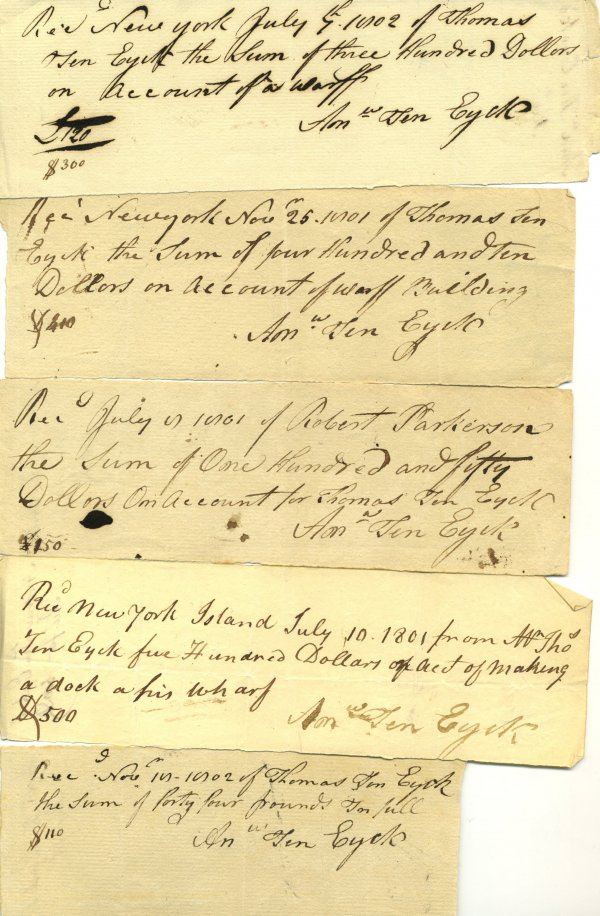 Recd New york July 7th 1802 of Thomas
Ten Eyck the Sum of three Hundred Dollars
on Account of a warff
Anw Ten Eyck
£120
$300
Recd Newyork Novr 25-1801 of Thomas Ten
Eyck the Sum of four Hundred and ten
Dollors on Account of warff Building
$410
Anw Ten Eyck
Recd July 1801 of Robert Parkerson
the Sum of One Hundred and fifty
Dollors On Account for Thomas Ten Eyck
Anw Ten Eyck
$150
Recd New York Island July 10-1801 from Mr Thos
Ten Eyck five Hundred Dollars on Acct of making
a dock a his wharf
$500
Anw Ten Eyck
Recd Novr 1802 of Thomas Ten Eyck
the Sum of forty four pounds In full
$110
Anw Ten Eyck